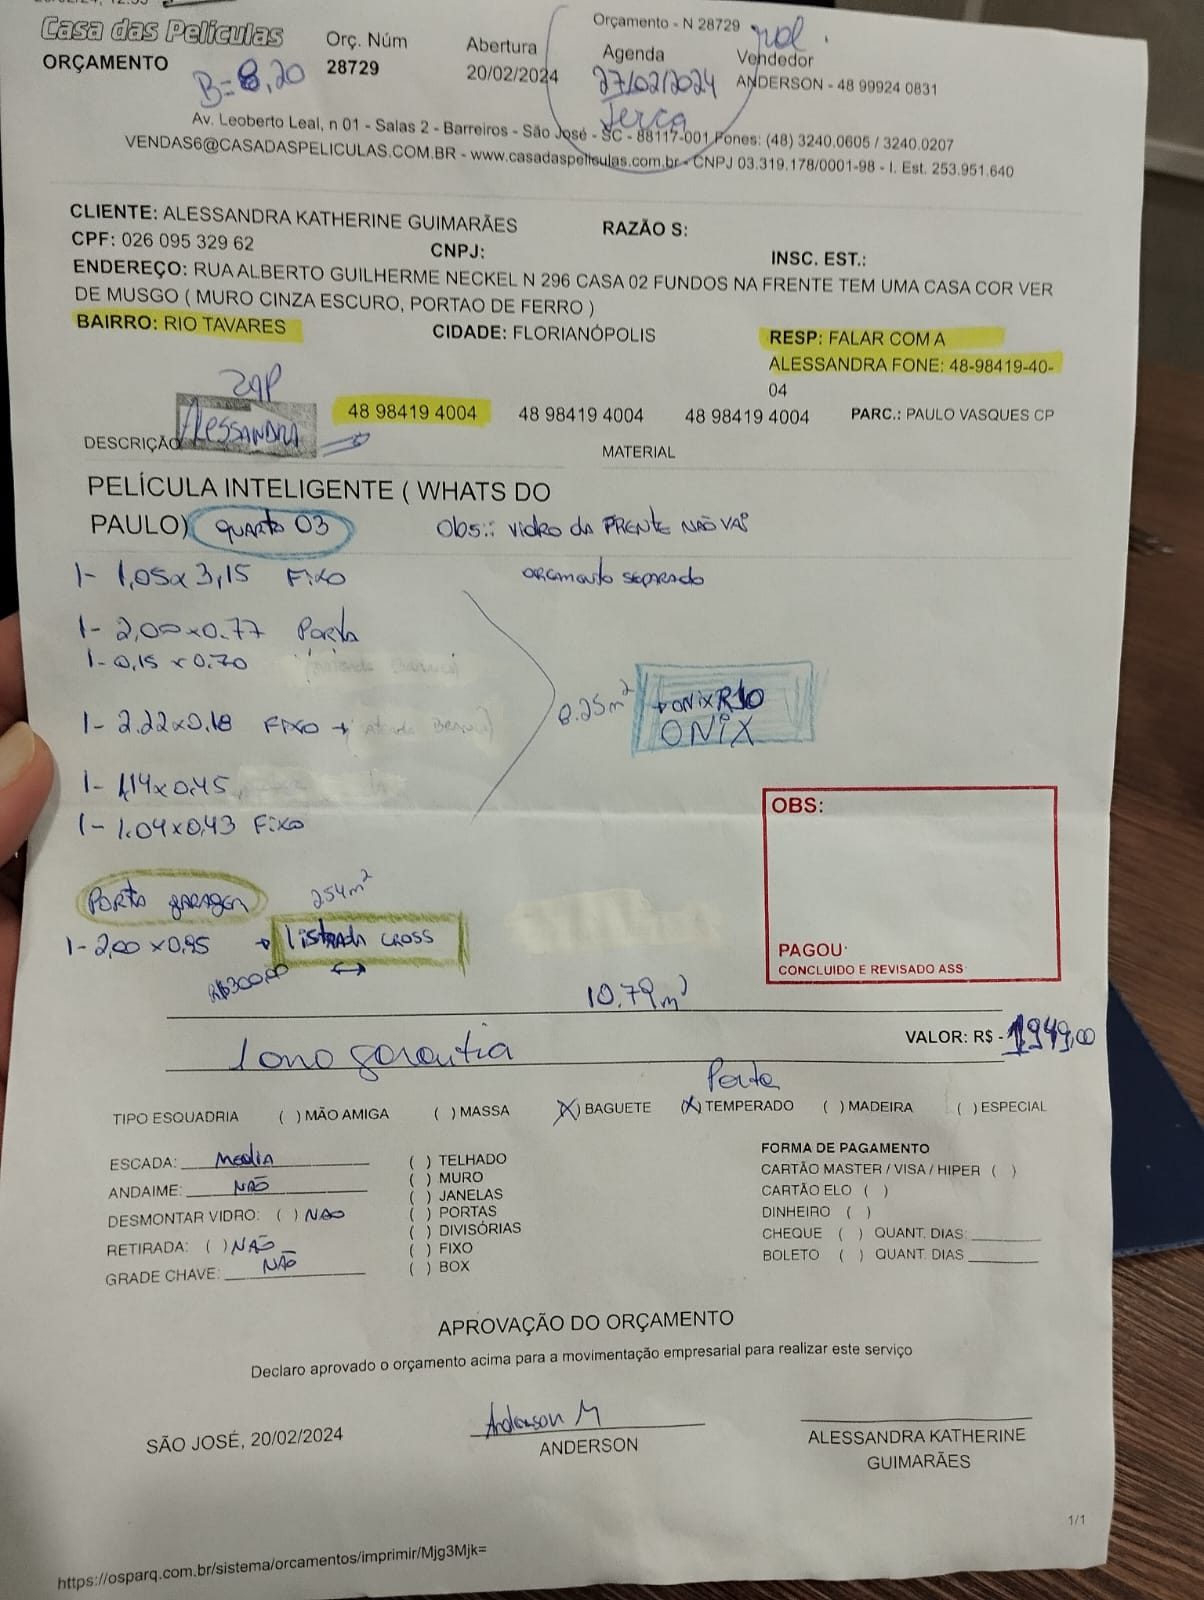 Casa das Películas
ORÇAMENTO
Orç. Núm
28729
Abertura
20/02/2024
Orçamento - N 28729
Agenda
27/02/2024
Terça
Vendedor
ANDERSON - 48 99924 0831
B=8,20
Av. Leoberto Leal, n 01 - Salas 2 - Barreiros - São José - SC - 88117-001 Fones: (48) 3240.0605 / 3240.0207
VENDAS6@CASADASPELICULAS.COM.BR - www.casadaspeliculas.com.br - CNPJ 03.319.178/0001-98 - I. Est. 253.951.640
CLIENTE: ALESSANDRA KATHERINE GUIMARÃES
RAZÃO S:
CPF: 026 095 329 62
CNPJ:
INSC. EST.:
ENDEREÇO: RUA ALBERTO GUILHERME NECKEL N 296 CASA 02 FUNDOS NA FRENTE TEM UMA CASA COR VER
DE MUSGO ( MURO CINZA ESCURO, PORTAO DE FERRO )
BAIRRO: RIO TAVARES
CIDADE: FLORIANÓPOLIS
RESP: FALAR COM A
ALESSANDRA FONE: 48-98419-40-
04
ZAP
Alessandra
48 98419 4004
48 98419 4004
48 98419 4004
PARC.: PAULO VASQUES CP
DESCRIÇÃO
MATERIAL
PELÍCULA INTELIGENTE ( WHATS DO
PAULO)
quarto 03
Obs:: vidro da FRENTE NÃO VAI
orçamento separado
1- 1,05x3,15 Fixo
1- 2,00x0.77 Porta
1- 0,15 x 0.70
1- 2.22x0,18 Fixo →
8.25m²
→ ONIX R10
ONIX
1- 1,14x0,45
1- 1.04x0,43 Fixo
OBS:
PAGOU
CONCLUIDO E REVISADO ASS
Porta garagem
2.54m²
1- 2,00 x 0,95 → listrada cross
R$300,00
10.79m²
VALOR: R$ - 1949,00
1 ano garantia
Porta
TIPO ESQUADRIA ( ) MÃO AMIGA ( ) MASSA (X) BAGUETE (X) TEMPERADO ( ) MADEIRA ( ) ESPECIAL
ESCADA: Media
ANDAIME: NÃO
DESMONTAR VIDRO: ( ) NAO
RETIRADA: ( ) NÃO
GRADE CHAVE: NÃO
( ) TELHADO
( ) MURO
( ) JANELAS
( ) PORTAS
( ) DIVISÓRIAS
( ) FIXO
( ) BOX
FORMA DE PAGAMENTO
CARTÃO MASTER / VISA / HIPER ( )
CARTÃO ELO ( )
DINHEIRO ( )
CHEQUE ( ) QUANT. DIAS:
BOLETO ( ) QUANT. DIAS
APROVAÇÃO DO ORÇAMENTO
Declaro aprovado o orçamento acima para a movimentação empresarial para realizar este serviço
SÃO JOSÉ, 20/02/2024
Anderson M
ANDERSON
ALESSANDRA KATHERINE
GUIMARÃES
1/1
https://osparq.com.br/sistema/orcamentos/imprimir/Mjg3Mjk=